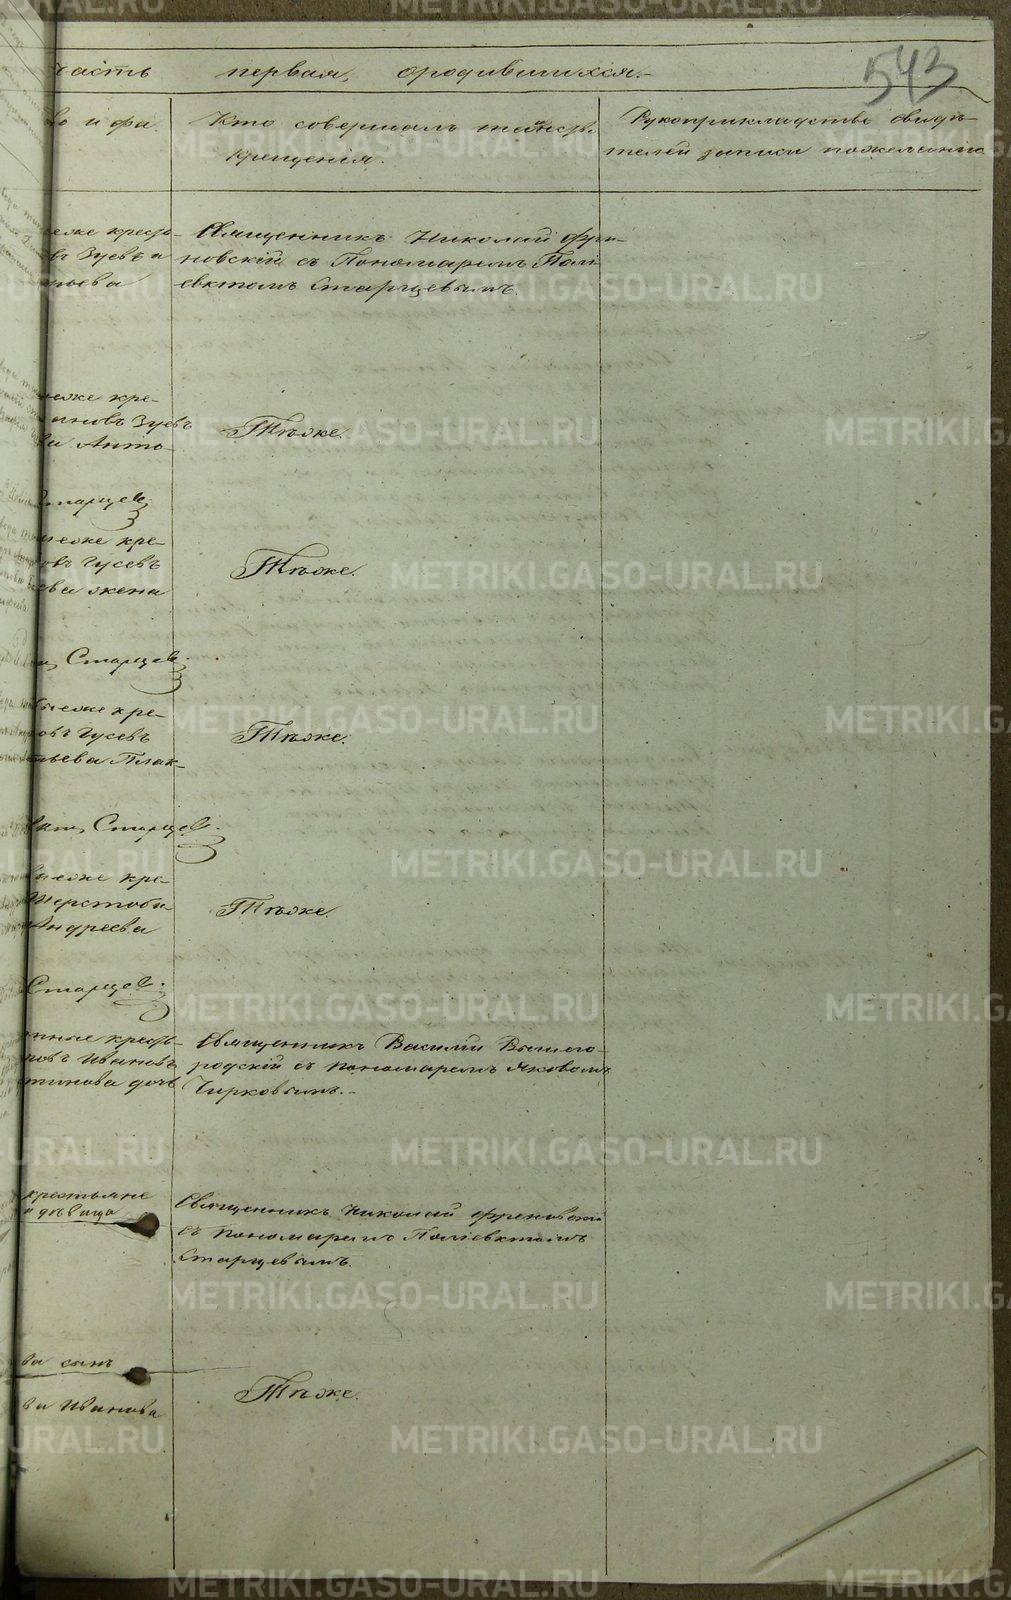 543
часть первая, ородившихся.
во и фа.
Кто совершалъ таинство
крещенія.
Рукоприкладство свидѣ-
телей записи пожеланію
Священникъ Николай
новскій съ Пономаремъ Полі
евктомъ Старцевымъ.
еже кре-
Зуевъ
Анто-
Тѣже.
Старцев.
еже кре-
овъ Гусевъ
ева жена
Тѣже.
Старцев.
еже кре-
овъ Гусевъ
Тѣже.
Старцев.
еже кре-
Андреева
Тѣже.
Старцев.
Ивановъ
тинова дочь
Священникъ Василій Вышего-
родскій съ пономаремъ Яковомъ
Чирковымъ.-
крестьяне
и дѣвица
Священникъ Николай
съ пономаремъ Поліевктомъ
Старцевымъ.
ва сынъ
ва Иванова
Тѣже.
METRIKI.GASO-URAL.RU